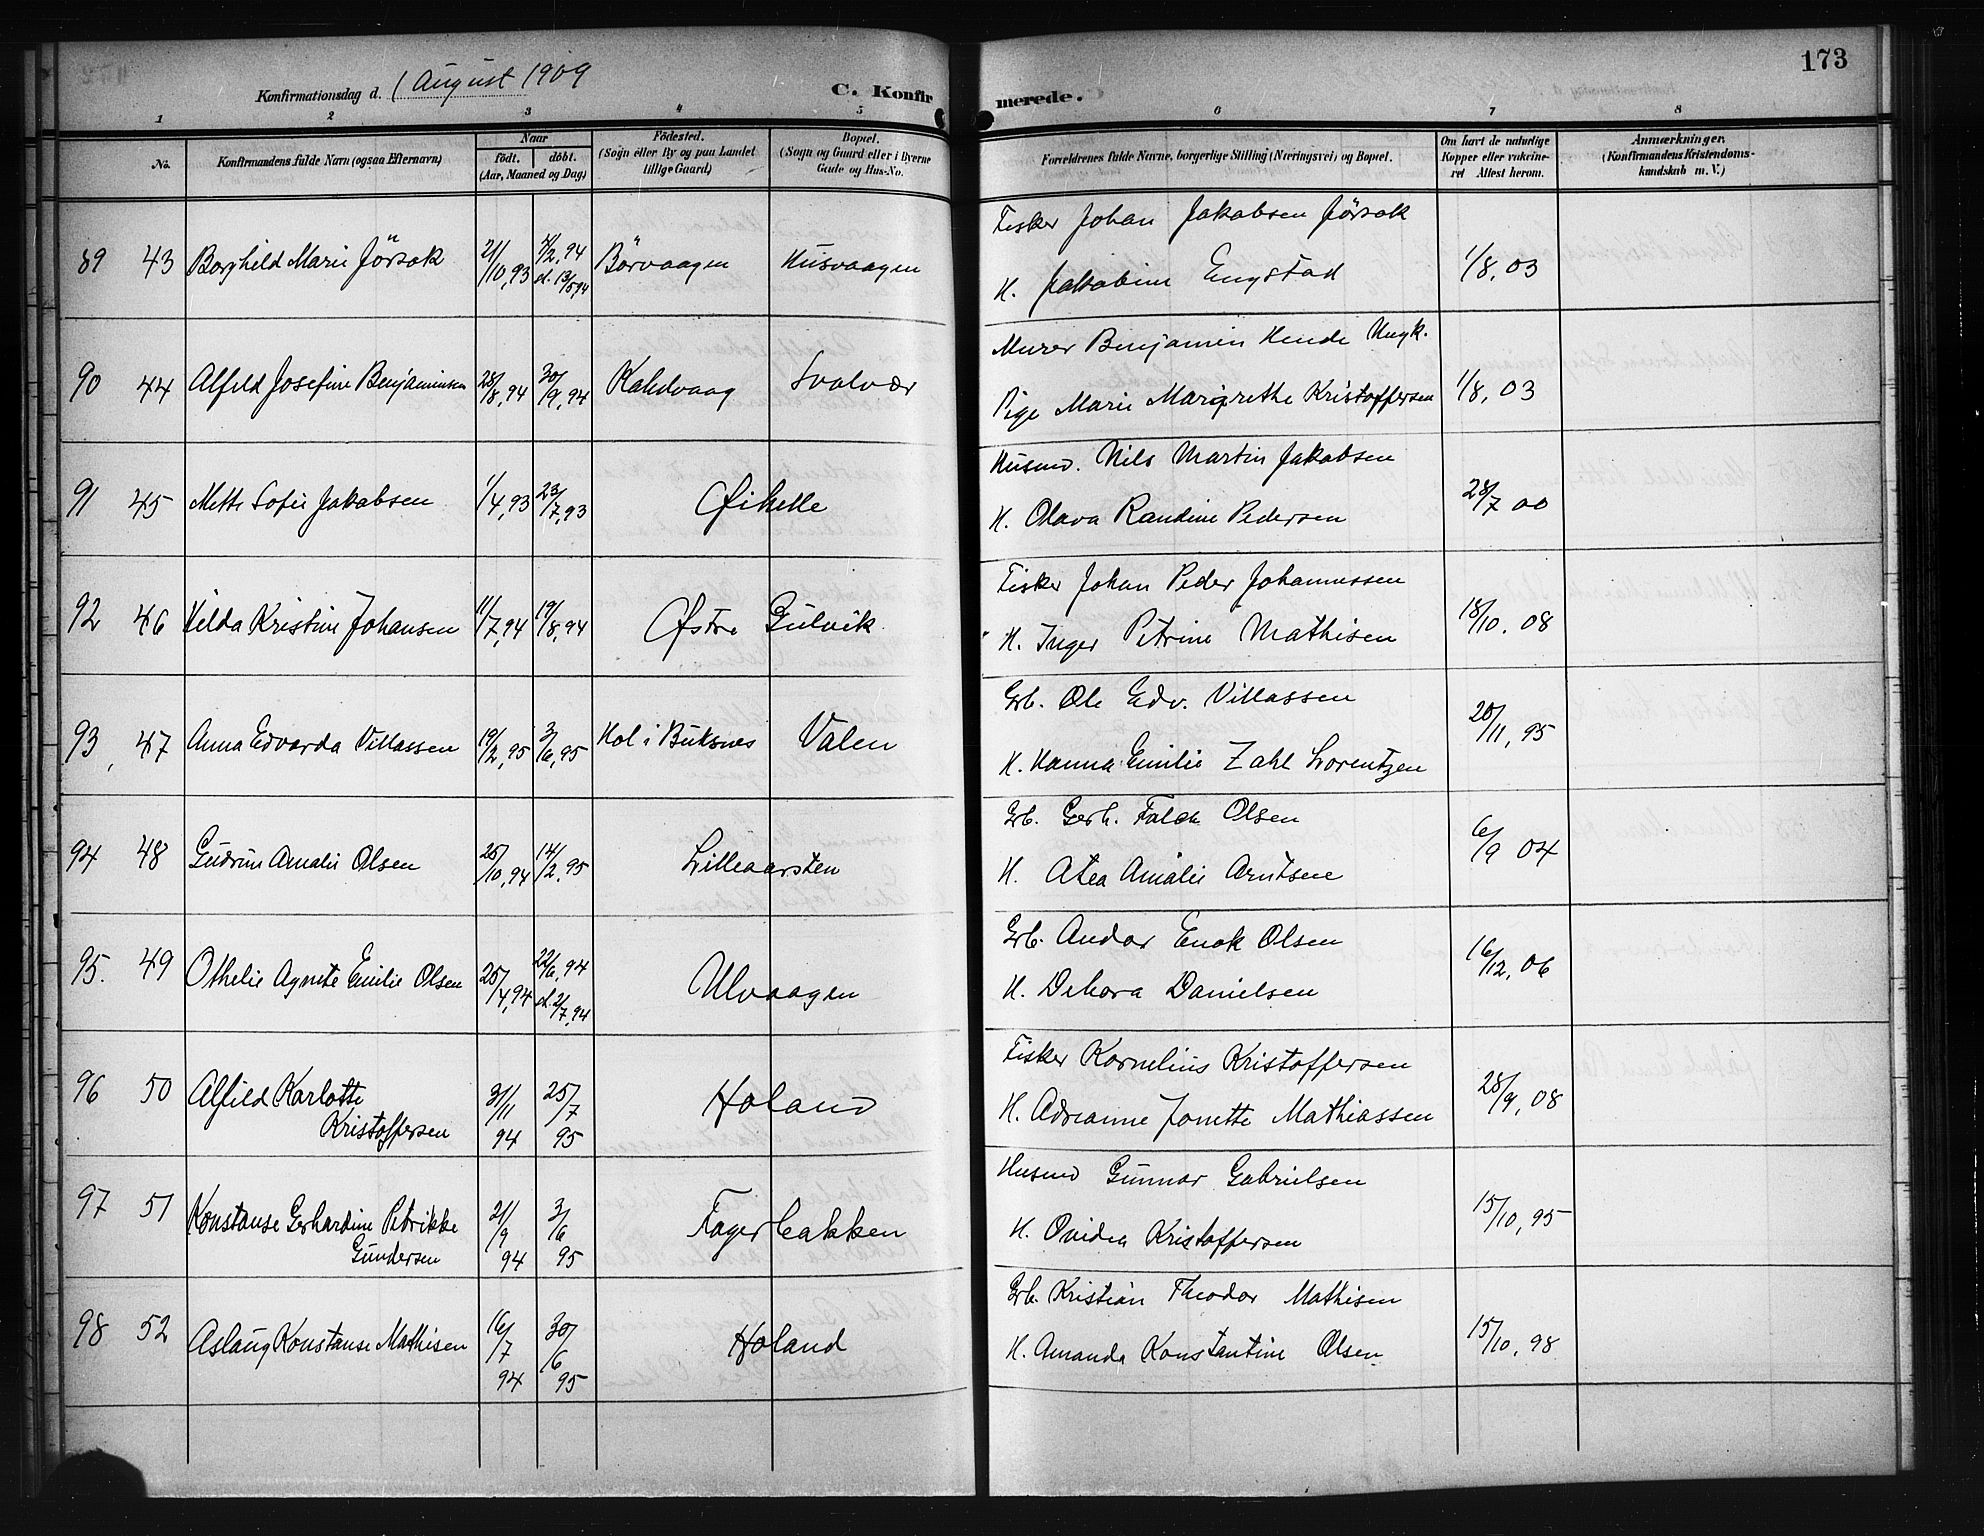 173
Konfirmationsdag d. 1 August 1909
C. Konfirmerede.
1 2 3 4 5 6 7 8
No. Konfirmandens fulde Navn (ogsaa Efternavn)
Naar
født. døbt.
(Aar, Maaned og Dag)
Fødested.
(Sogn eller By og paa Landet
tillige Gaard)
Bopæl.
(Sogn og Gaard eller i Byerne
Gade og Hus-No.
Forældrenes fulde Navne, borgerlige Stilling (Næringsvei) og Bopæl.
Om havt de naturlige
Kopper eller vakcine-
ret Attest herom.
Anmærkninger.
(Konfirmandens Kristendoms-
kundskab m. V.)
89 43 Borghild Marie Jörsok 21/10,93 4/2,94 d. 13/5 94 Börvaagen Husvaagen
Fisker Johan Jakobsen Jörsok
H. Jakobine Engstad
1/8, 03
90 44 Alfild Josefine Benjaminsen 28/8,94 30/9,94 Kalvaag Svolvær
Murer Benjamin Hende Ungk.
Pige Marie Margrethe Kristoffersen
1/8, 03
91 45 Mette Sofie Jakobsen 1/4,93 23/7,93 Øihelle
Husmd. Nils Martin Jakobsen
H. Olava Randine Pedersen
28/7 00
92 46 Hilda Kristine Johansen 11/7,94 19/8,94 Østre Gulvik
Fisker Johan Peder Johannessen
H. Inger Petrine Mathisen
18/10. 08
93 47 Anna Edvarda Villassen 19/2,95 3/6,95 Hol i Buksnes Valen
Grb. Ole Edv. Villassen
H. Hanna Emilie Zahl Lorentzen
20/11, 95
94 48 Gudrun Amalie Olsen 25/10,94 14/2,95 Lilleaarsten
Grb. Gerh. Falck Olsen
H. Atea Amalie Arntsen
6/9 04
95. 49 Othelie Agnete Emilie Olsen 25/4,94 22/6,94 d. 2/7,94 Ulvaagen
Grb. Andor Enok Olsen
H. Debora Danielsen
16/12, 06
96 50 Alfild Karlotte
Kristoffersen 3/11 94 25/7 95 Holand
Fisker Kornelius Kristoffersen
H. Adrianne Jonette Mathiassen
28/9, 08
97 51 Konstanse Gerhardine Petrikke
Gundersen 21/9 94 3/6 95 Fagerbakken
Husmd Gunnar Gabrielsen
H. Ovidea Kristoffersen
15/10, 95
98 52 Aslaug Konstanse Mathisen 16/7 94 30/6 95 Holand
Grb. Kristian Theodor Mathisen
H. Amanda Konstantine Olsen
15/10, 98